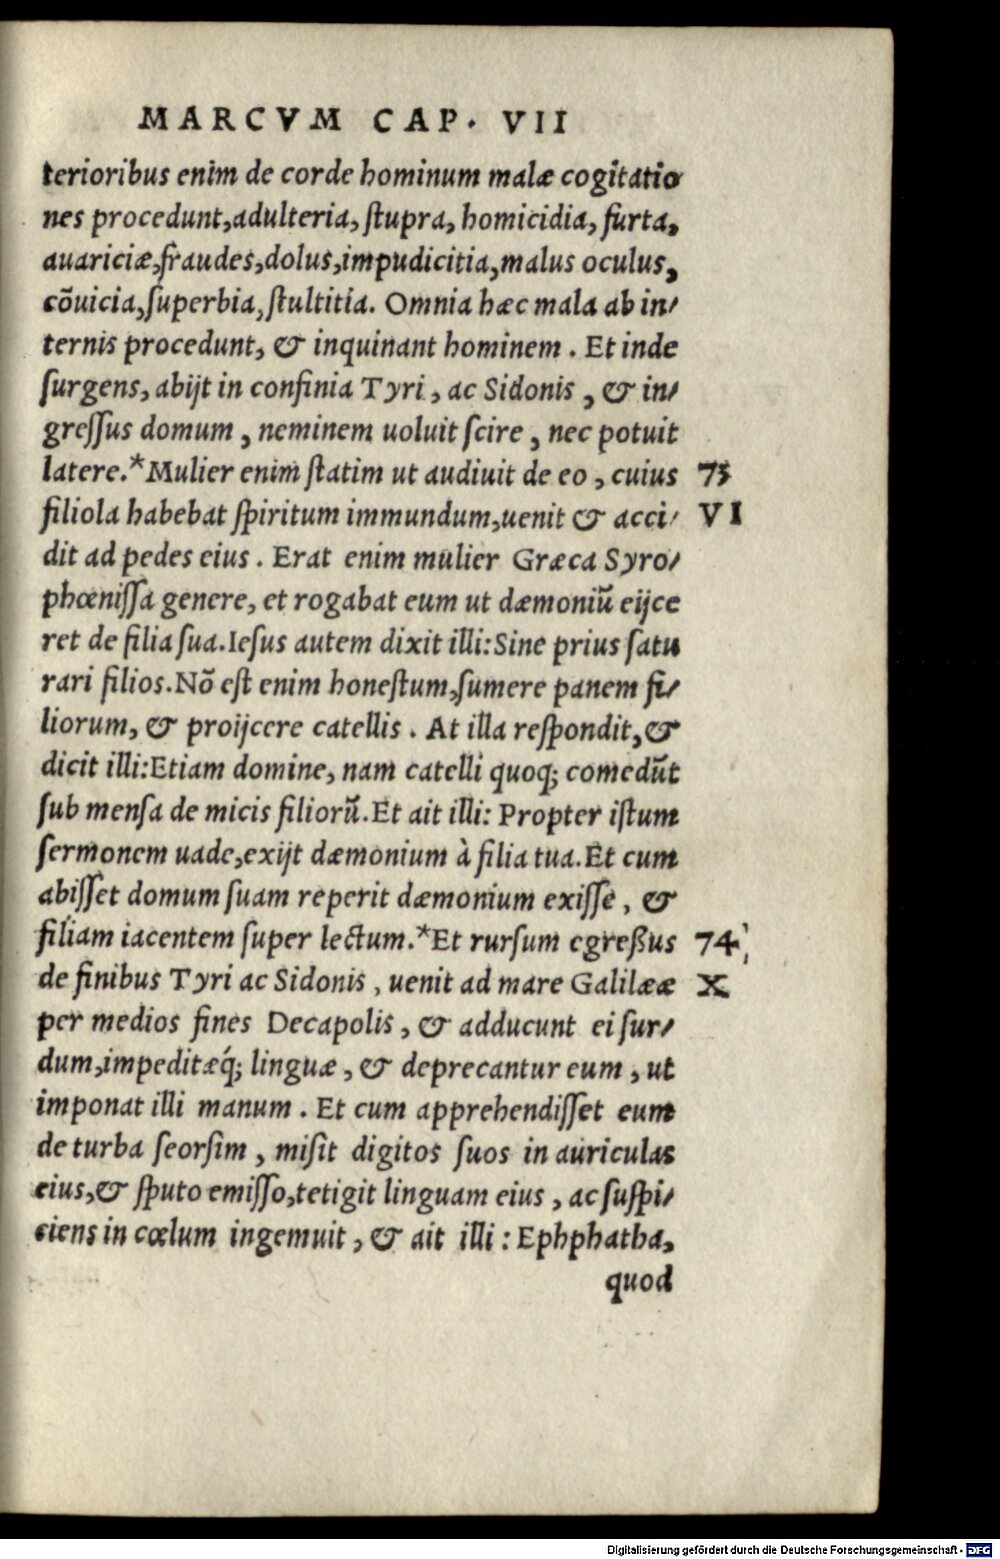 MARCVM CAP. VII
terioribus enim de corde hominum malæ cogitatio
nes procedunt,adulteria, ſtupra, homicidia, furta,
auariciæ,fraudes,dolus,impudicitia,malus oculus,
cõuicia,ſuperbia, ſtultitia. Omnia hæc mala ab in/
ternis procedunt, & inquinant hominem . Et inde
ſurgens, abijt in confinia Tyri , ac Sidonis , & in/
greſſus domum , neminem uoluit ſcire , nec potuit
latere.*Mulier enim ſtatim ut audiuit de eo , cuius 73
filiola habebat ſpiritum immundum,uenit & acci/ VI
dit ad pedes eius . Erat enim mulier Græca Syro/
phœniſſa genere, et rogabat eum ut dæmoniũ eijce
ret de filia ſua.Ieſus autem dixit illi:Sine prius ſatu
rari filios.Nõ eſt enim honeſtum,ſumere panem fi/
liorum, & proijcere catellis . At illa reſpondit,&
dicit illi:Etiam domine, nam catelli quoq; comedũt
ſub menſa de micis filiorũ.Et ait illi: Propter iſtum
ſermonem uade,exijt dæmonium à filia tua.Et cum
abiſſet domum ſuam reperit dæmonium exiſſe , &
filiam iacentem ſuper lectum.*Et rurſum egreßus 74
de finibus Tyri ac Sidonis , uenit ad mare Galilææ X
per medios fines Decapolis , & adducunt ei ſur/
dum,impeditæq́; linguæ , & deprecantur eum , ut
imponat illi manum . Et cum apprehendiſſet eum
de turba ſeorſim , miſit digitos ſuos in auriculas
eius,& ſputo emiſſo,tetigit linguam eius , ac ſuſpi/
ciens in cœlum ingemuit , & ait illi : Ephphatha,
quod
Digitalisierung gefördert durch die Deutsche Forschungsgemeinschaft - DFG